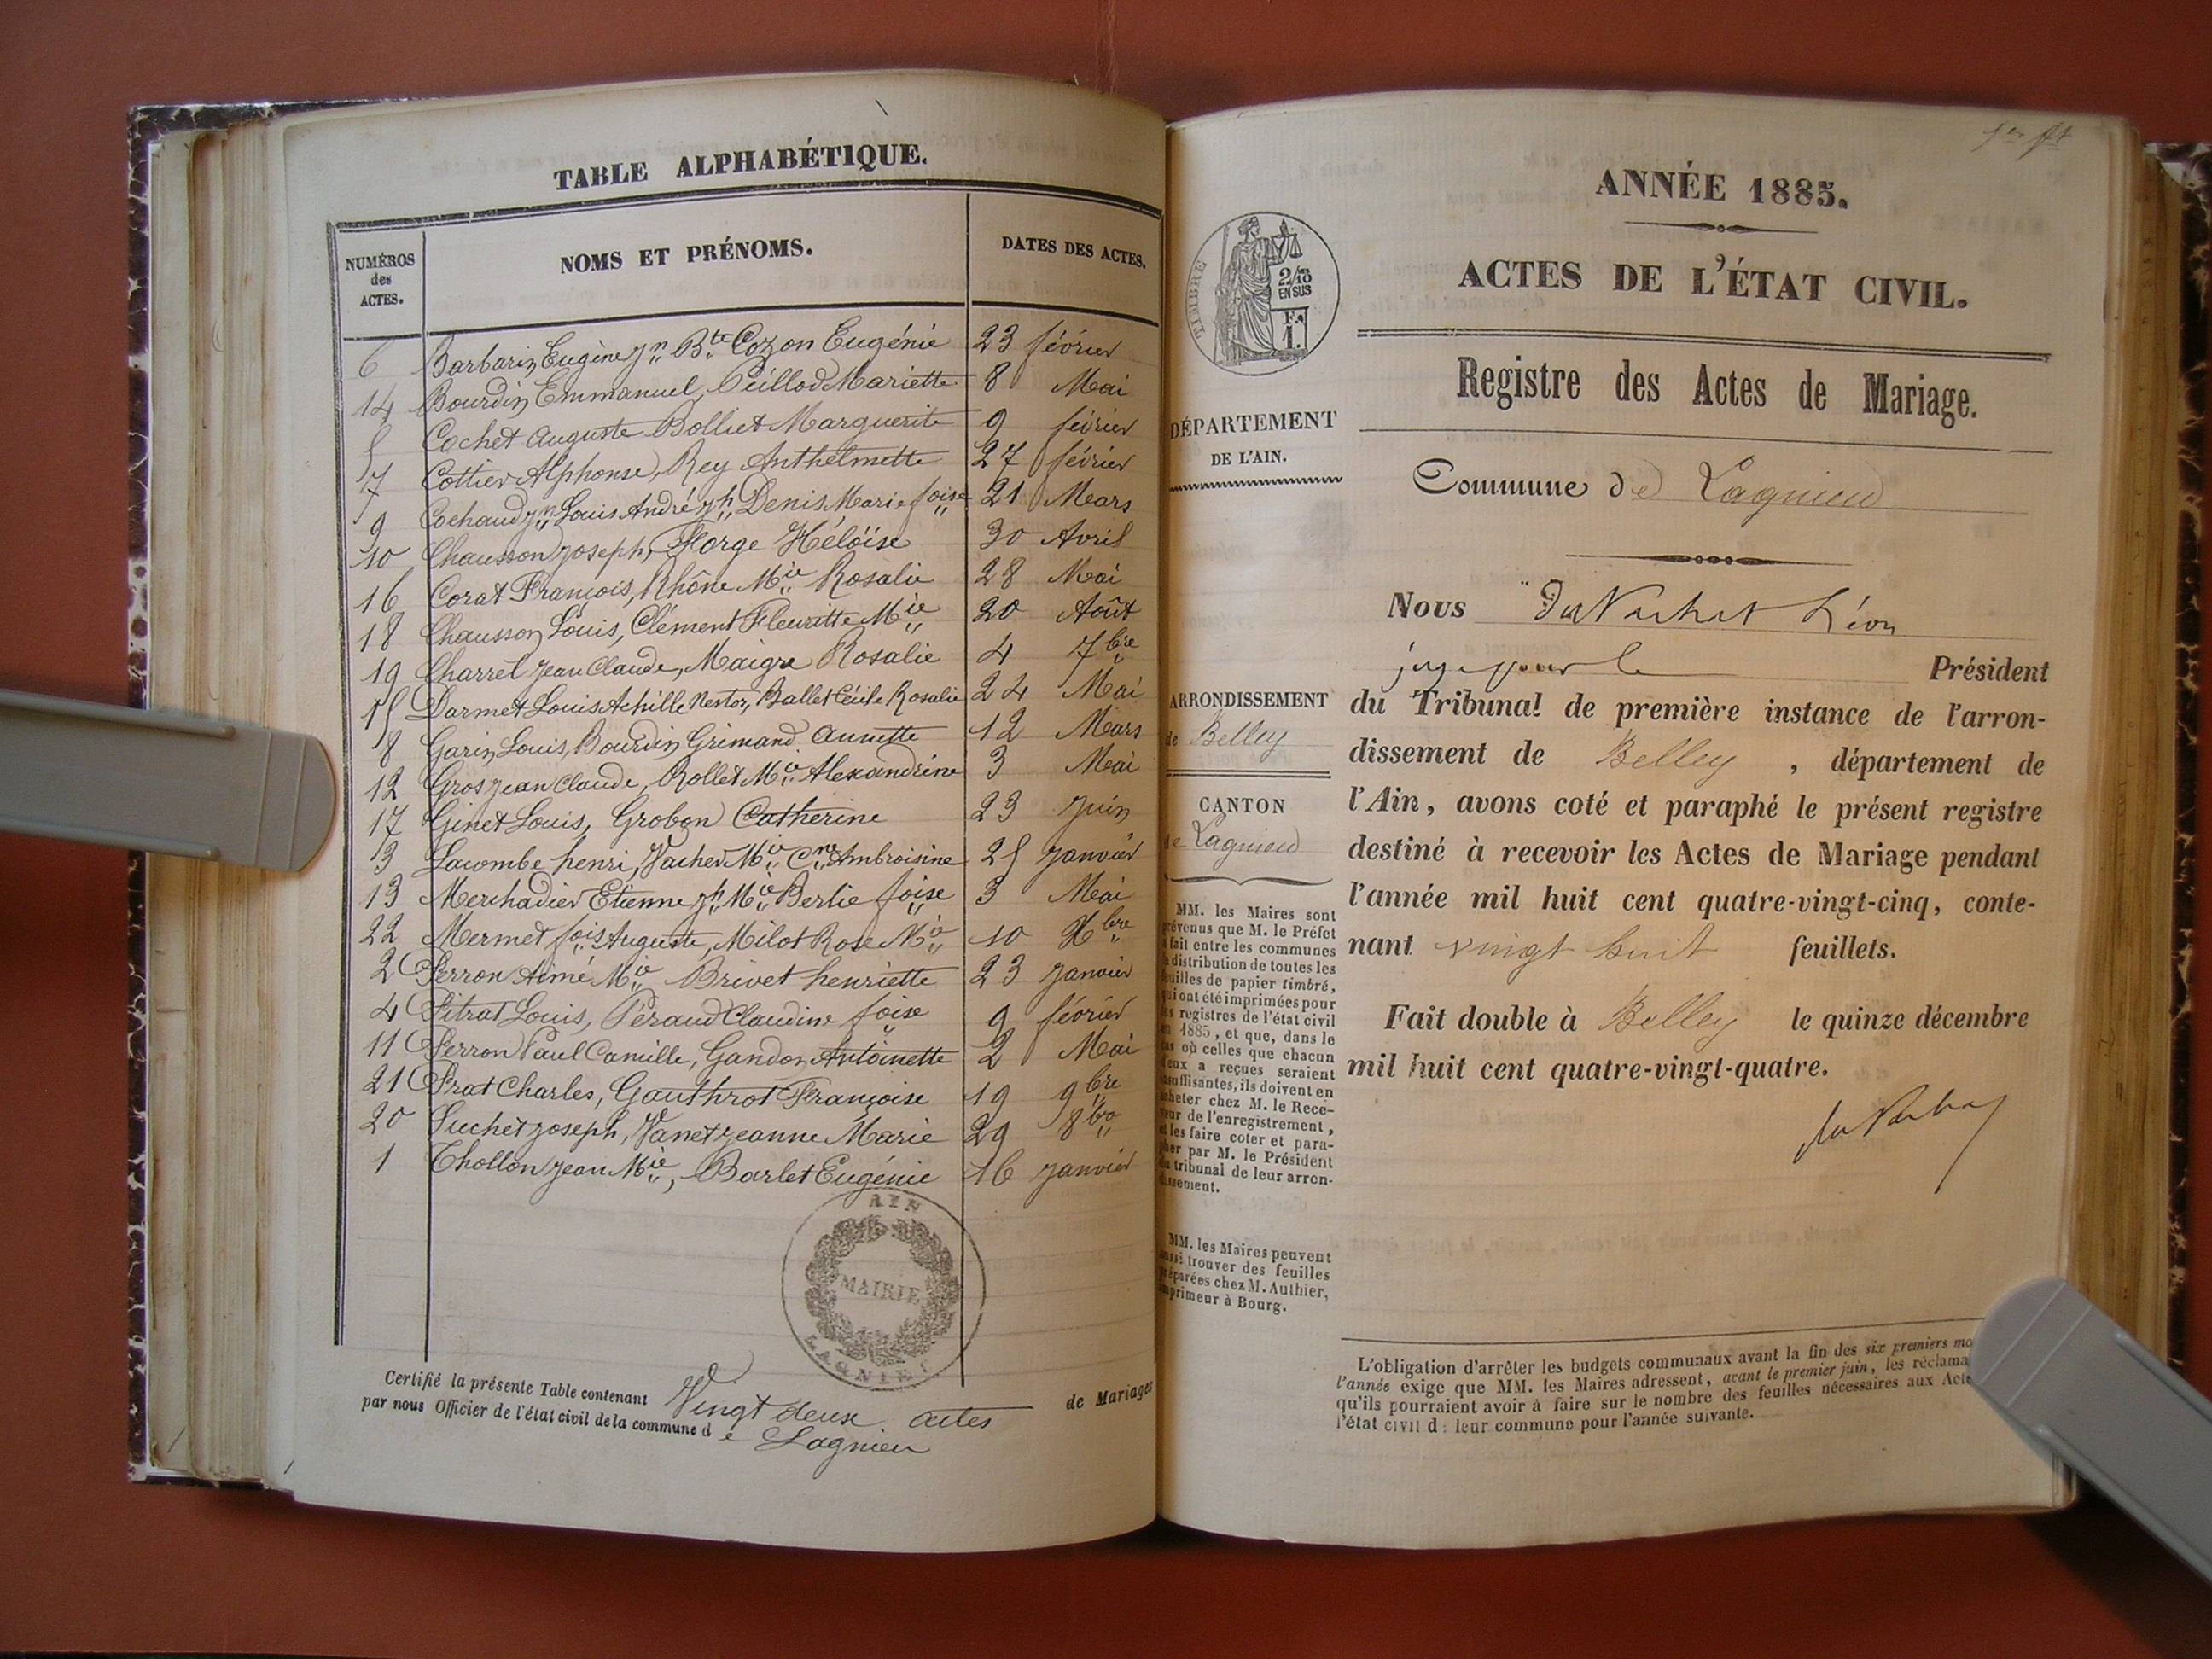 TABLE ALPHABÉTIQUE.
NUMÉROS des ACTES. NOMS ET PRÉNOMS. DATES DES ACTES.
6 Barbarin Eugène Jn Bte Cozon Eugénie 23 février
14 Bourdin Emmanuel, Peillod Mariette 8 Mai
5 Cochet Auguste Bolliet Marguerite 9 février
7 Cottier Alphonse, Rey Anthelmette 27 février
9 Cochaud Jn Louis André Jh Denis Marie foise 21 Mars
10 Chausson Joseph, Forge Héloïse 30 Avril
16 Corat François, Rhône Mie Rosalie 28 Mai
18 Chausson Louis, Clément Fleuratte Mie 20 Août
19 Charrel Jean Claude, Maigre Rosalie 4 7bre
15 Darmet Louis Achille Nestor, Ballet Cécile Rosalie 24 Mai
8 Garin Louis, Bourdin Grimand Annette 12 Mars
12 Gros Jean Claude, Rollet Mie Alexandrine 3 Mai
17 Ginet Louis, Grobon Catherine 23 Juin
3 Lacombe henri, Vacher Mie Cne Ambroisine 25 Janvier
13 Merchadier Etienne Jh Mie Berlie foise 3 Mai
22 Mermet fois Auguste, Milot Rose Mie 10 Xbre
2 Perron Aimé Mie Brivet henriette 23 Janvier
4 Pitrat Louis, Péraud Claudine foise 9 février
11 Perron Paul Camille, Gandon Antoinette 2 Mai
21 Prat Charles, Gauthrot Françoise 19 9bre
20 Suchet Joseph, Vanet Jeanne Marie 29 8bre
1 Thollon Jean Mie, Barlet Eugénie 16 Janvier
AIN
MAIRIE
LAGNIEU
Certifié la présente Table contenant Vingt deux actes de Mariages
par nous Officier de l'état civil de la commune de Lagnieu
1er ft
ANNÉE 1885.
ACTES DE L'ÉTAT CIVIL.
Registre des Actes de Mariage.
TIMBRE
2/10
EN SUS
F.
1.
DÉPARTEMENT
DE L'AIN.
ARRONDISSEMENT
de Belley
CANTON
de Lagnieu
MM. les Maires sont
prévenus que M. le Préfet
a fait entre les communes
la distribution de toutes les
feuilles de papier timbré,
qui ont été imprimées pour
les registres de l'état civil
en 1885, et que, dans le
cas où celles que chacun
d'eux a reçues seraient
insuffisantes, ils doivent en
acheter chez M. le Rece-
veur de l'enregistrement,
et les faire coter et para-
pher par M. le Président
du tribunal de leur arron-
dissement.
MM. les Maires peuvent
aussi trouver des feuilles
préparées chez M. Authier,
imprimeur à Bourg.
Commune de Lagnieu
Nous Léon
juge pour le Président
du Tribunal de première instance de l'arron-
dissement de Belley, département de
l'Ain, avons coté et paraphé le présent registre
destiné à recevoir les Actes de Mariage pendant
l'année mil huit cent quatre-vingt-cinq, conte-
nant vingt huit feuillets.
Fait double à Belley le quinze décembre
mil huit cent quatre-vingt-quatre.
L'obligation d'arrêter les budgets communaux avant la fin des six premiers mo
l'année exige que MM. les Maires adressent, avant le premier juin, les réclama
qu'ils pourraient avoir à faire sur le nombre des feuilles nécessaires aux Acte
l'état civil d: leur commune pour l'année suivante.